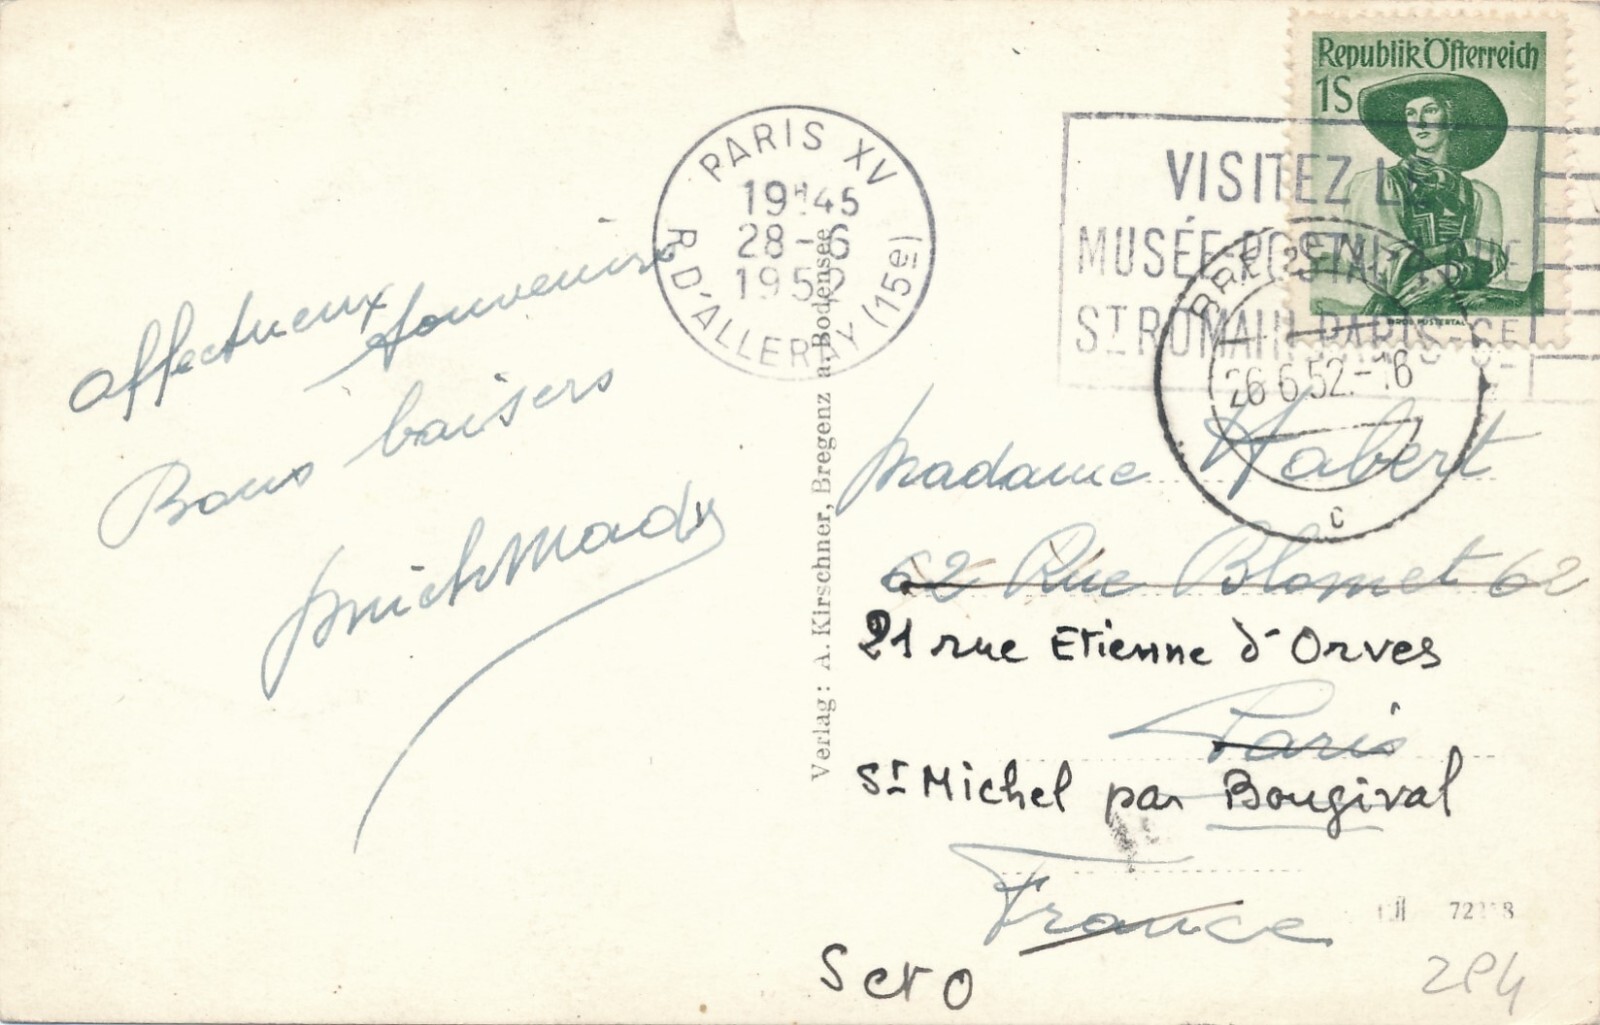 affectueux souvenirs
Bons baisers
Verlag: A. Kirschner, Bregenz a. Bodensee
PARIS XV
19H45
28-6
1952
R. D'ALLERAY (15e)
VISITEZ LE
MUSÉE POSTAL
ST ROMAIN PARIS-6E
Republik Österreich
1S
TIROL PUSTERTAL
BREGENZ
26.6.52.-16
c
Madame Habert
62 Rue Blomet 62
21 rue Etienne d'Orves
Paris
St Michel par Bougival
France
S et O
284